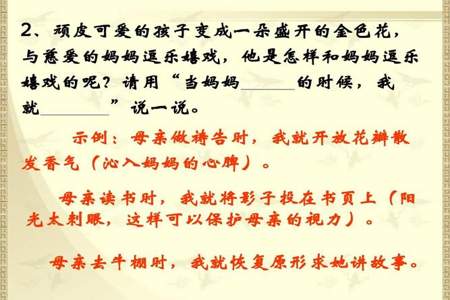 2、顽皮可爱的孩子变成一朵盛开的金色花，
与慈爱的妈妈逗乐嬉戏，他是怎样和妈妈逗乐
嬉戏的呢？请用“当妈妈______的时候，我
就________”说一说。
示例：母亲做祷告时，我就开放花瓣散
发香气（沁入妈妈的心脾）。
母亲读书时，我就将影子投在书页上（阳
光太刺眼，这样可以保护母亲的视力）。
母亲去牛棚时，我就恢复原形求她讲故事。